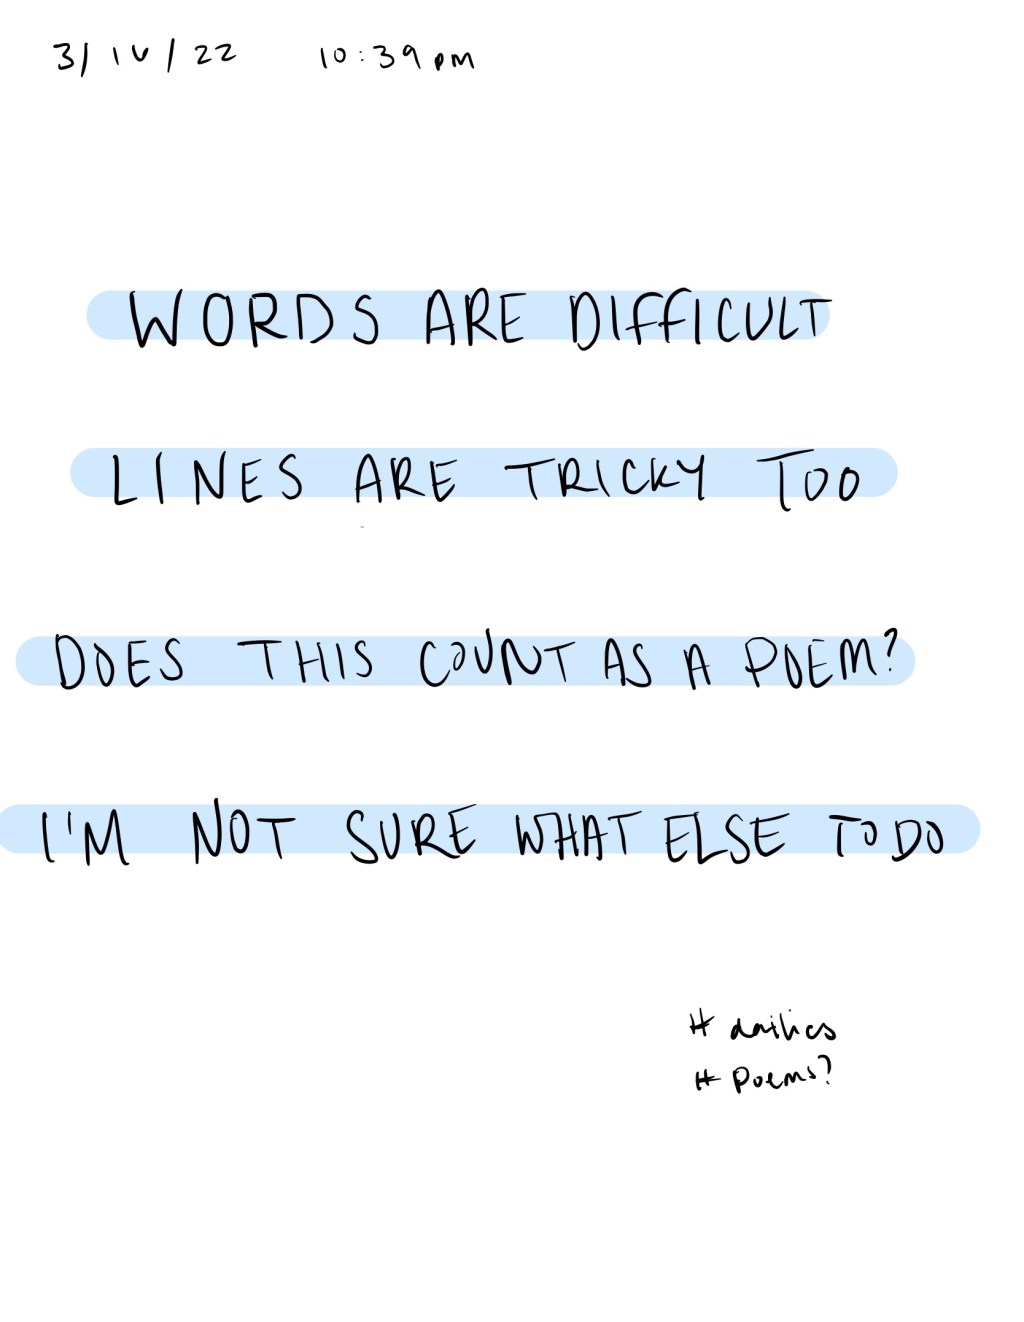 3/16/22 10:39 pm
WORDS ARE DIFFICULT
LINES ARE TRICKY TOO
DOES THIS COUNT AS A POEM?
I'M NOT SURE WHAT ELSE TO DO
# dailies
# poems?